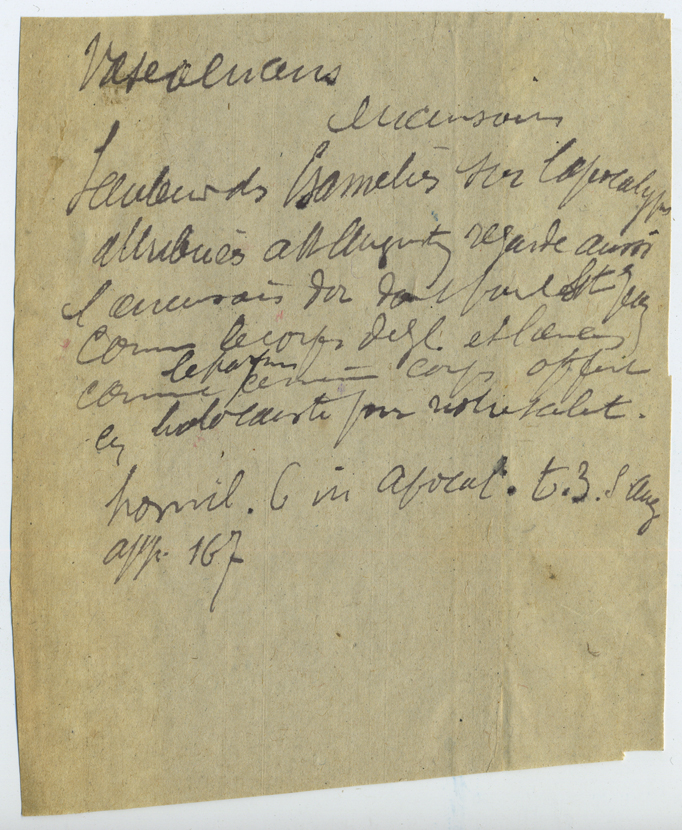 Vase à encens
encensoirs
L'auteur des homelies sur l'apocalypse
attribuées a St Augustin regarde aussi
l'encensoir d'or dont parle St Jean
comme le corps de J.C. et l'encens
le parfum
comme ce même corps offert
en holocauste pour notre salut.
homil. 6 in apocal. t. 3. S. Aug
app. 167